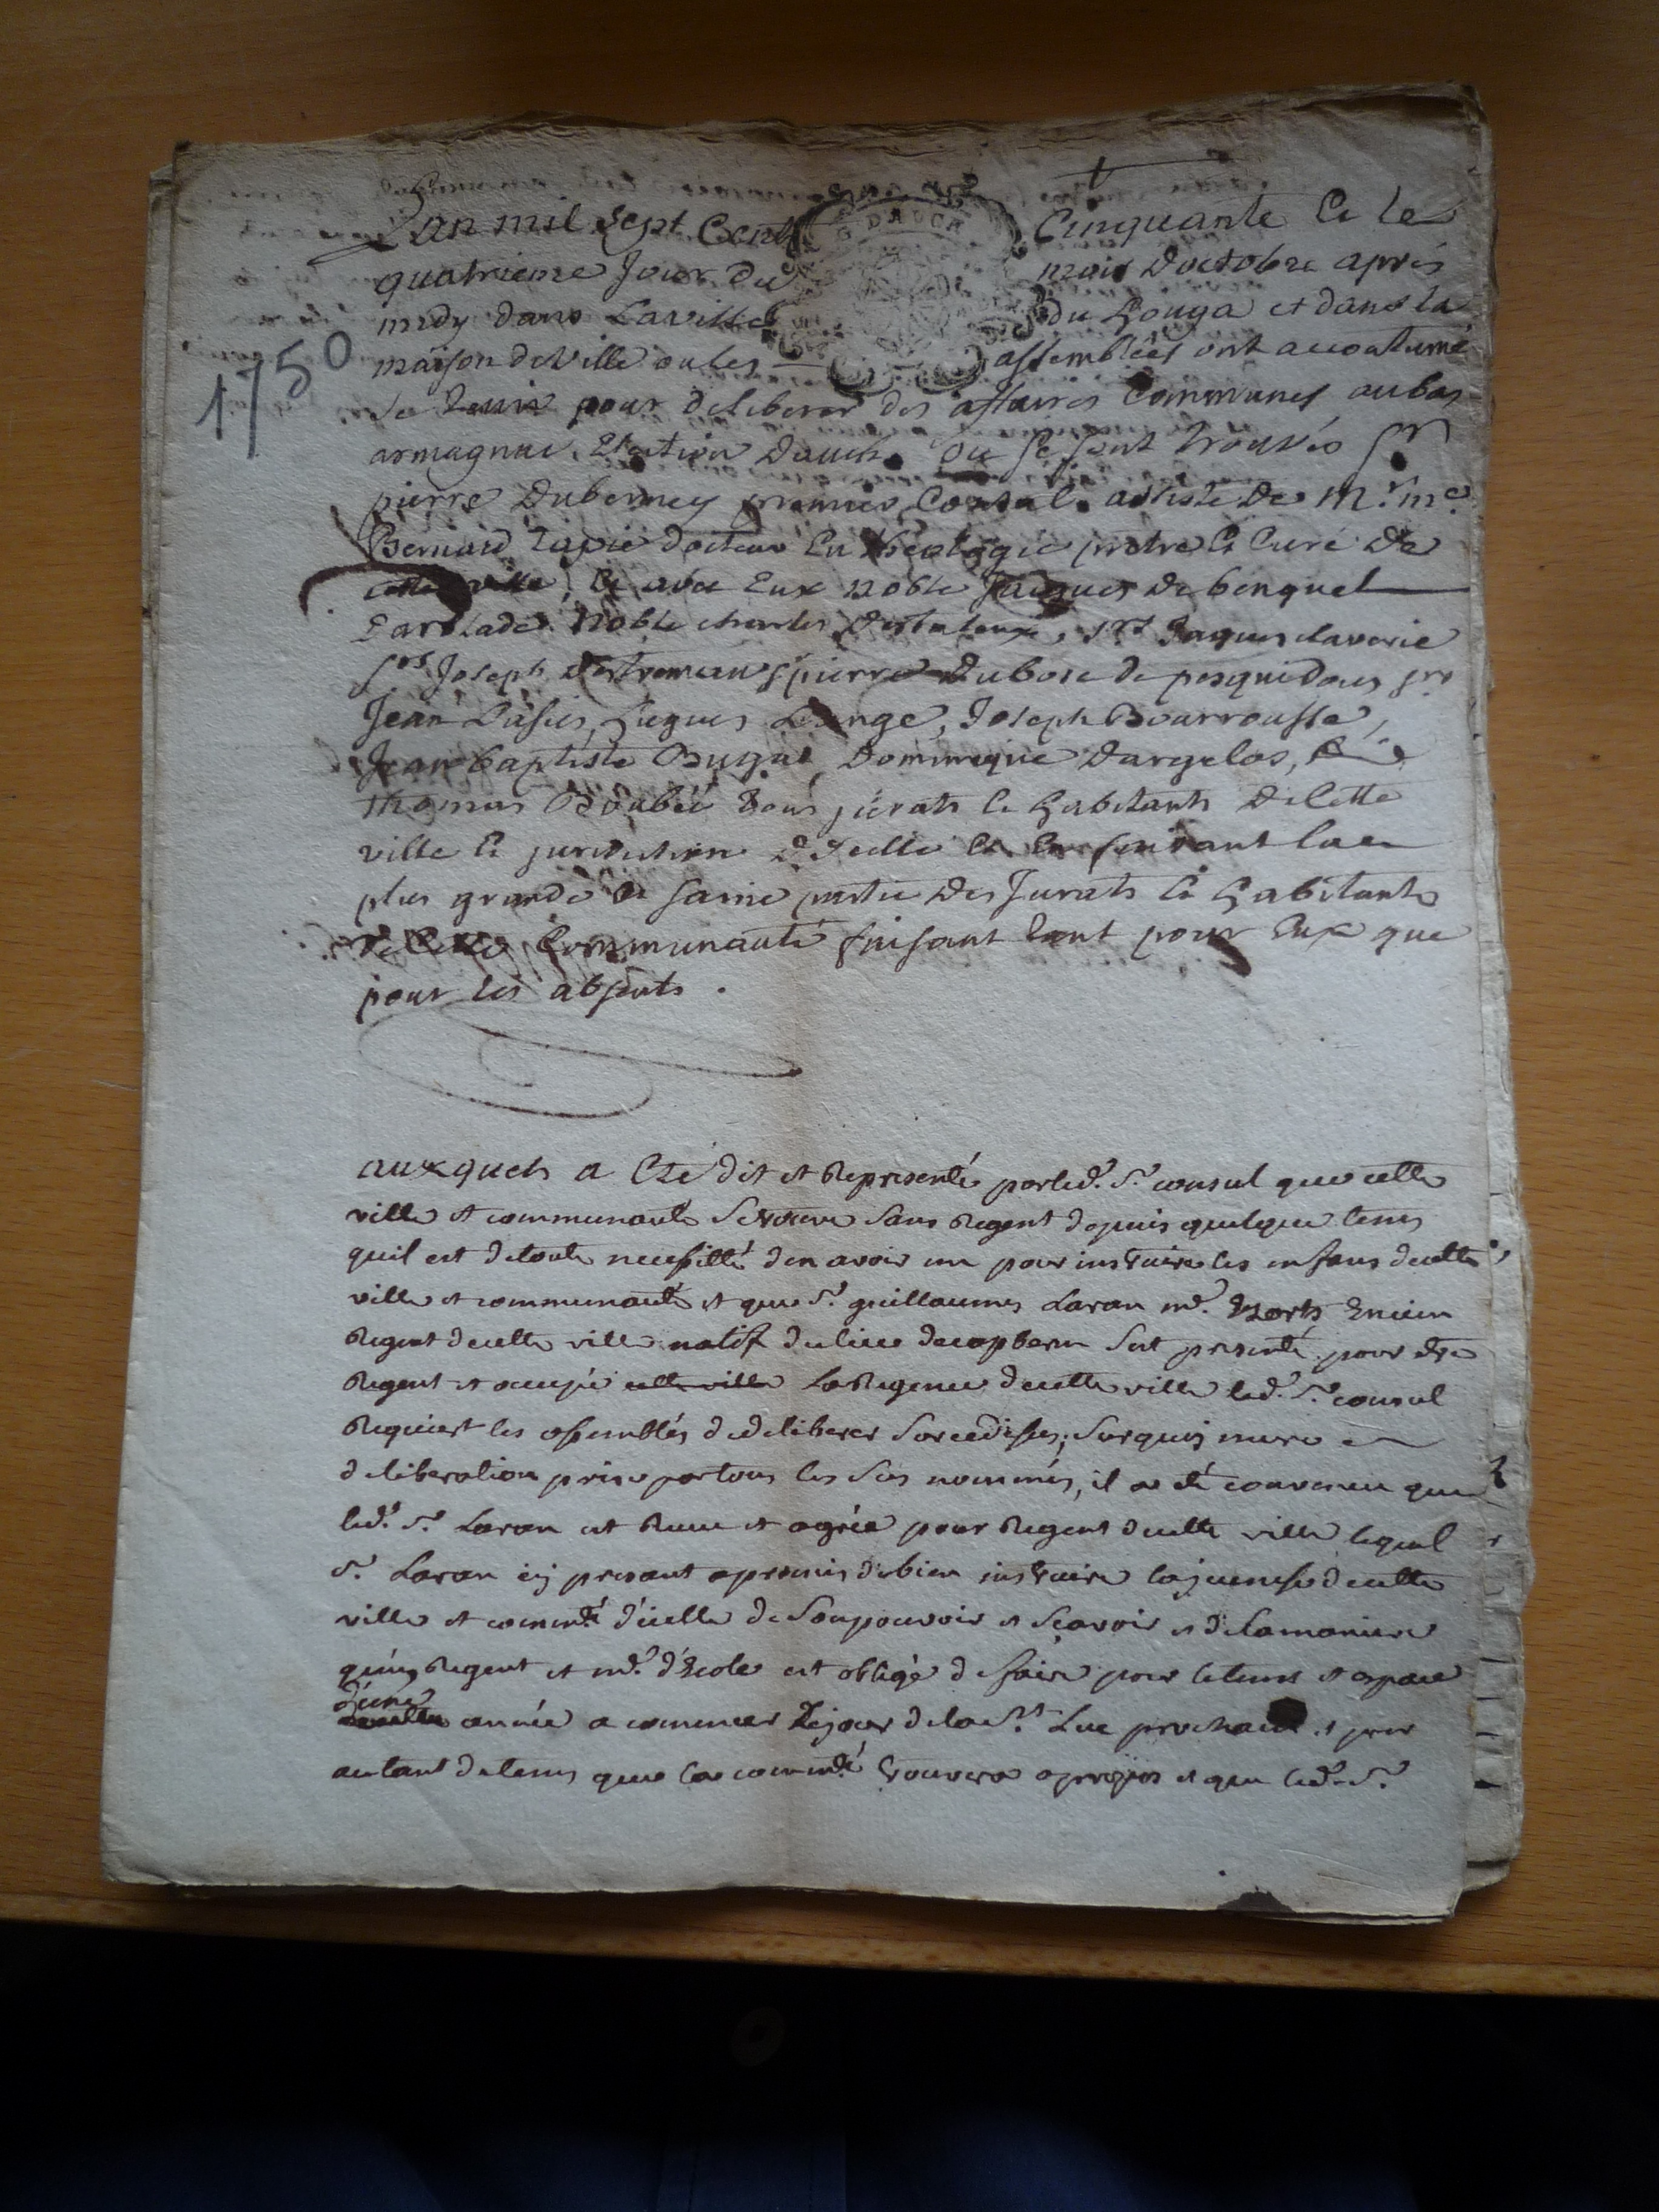 G DAUCH
Lan mil Sept Cent Cinquante Et le
quatrieme Jour du mois doctobre aprés
midy dans Laville du houga et dans la
maison deville oules assemblées ont accoutumé
se tenir pour deliberer des affaires Communes aubas
armagnac Election Dauch. Ou se sont trouvés Sr
1750
pierre Duberney premier Consul assisté De Mr. me.
Bernard Lapie docteur En theologie pretre Et Curé De
cette ville, Et avec Eux noble Jacques De benquet
Noble charles, Srs Jaques claverie
Srs Joseph pierre Dubosc de pesquidous Srs
Jean Hugues Lange, Joseph Bourrousse,
Jean baptiste Dominique Dargelos,
thomas Boubée tous jurats Et habitants De Cette
ville Et jurisdiction D'Icelle Et En faisant la
plus grande Et saine partie Des Jurats Et habitants
de Cette Communauté faisant tant pour Eux que
pour les absents.
auxquels a Eté dit et Representé parled. Sr. consul que cette
ville et communauté Setrouve sans Regent depuis quelque tems
quil est detoute necessitté den avoir un pour instruire les enfans decette
ville et communauté et que Sr. guillaumes Laran me. Ezarts Encien
Regent decette ville natif dulieu decapbern Sest presenté pour etre
Regent et occupé cette ville LaRegence decette ville led. Sr. consul
Requiert les assemblés dedeliberer Sur cedessus; Surquoy mure
deliberation prise partous les Sus nommés, il a été convenu que
led. Sr. Laran est Receu et agrée pour Regent decette ville lequel
Sr. Laran icy presant apromis debien instruire lajeunesse decette
ville et commté d'icelle de Sonpouvoir et Scavoir et delamaniere
qu'un Regent et me. d'Ecole est obligé de faire pour letems et espace
d'une
année a commencer Lejour delaSt. Luc prochain et pour
autant detems que la commté trouvera apropos et que led. Sr.